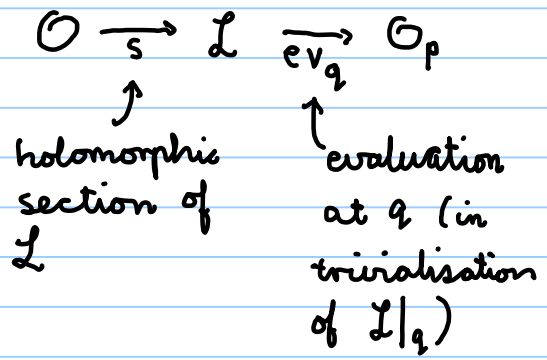 𝒪 →s ℒ →ev_q 𝒪_p
holomorphic
section of
ℒ
evaluation
at q (in
trivialisation
of ℒ|_q)